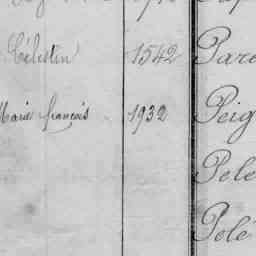 Célestin 1542 Pare
Marie françois 1932 Peig
Pele
Polé